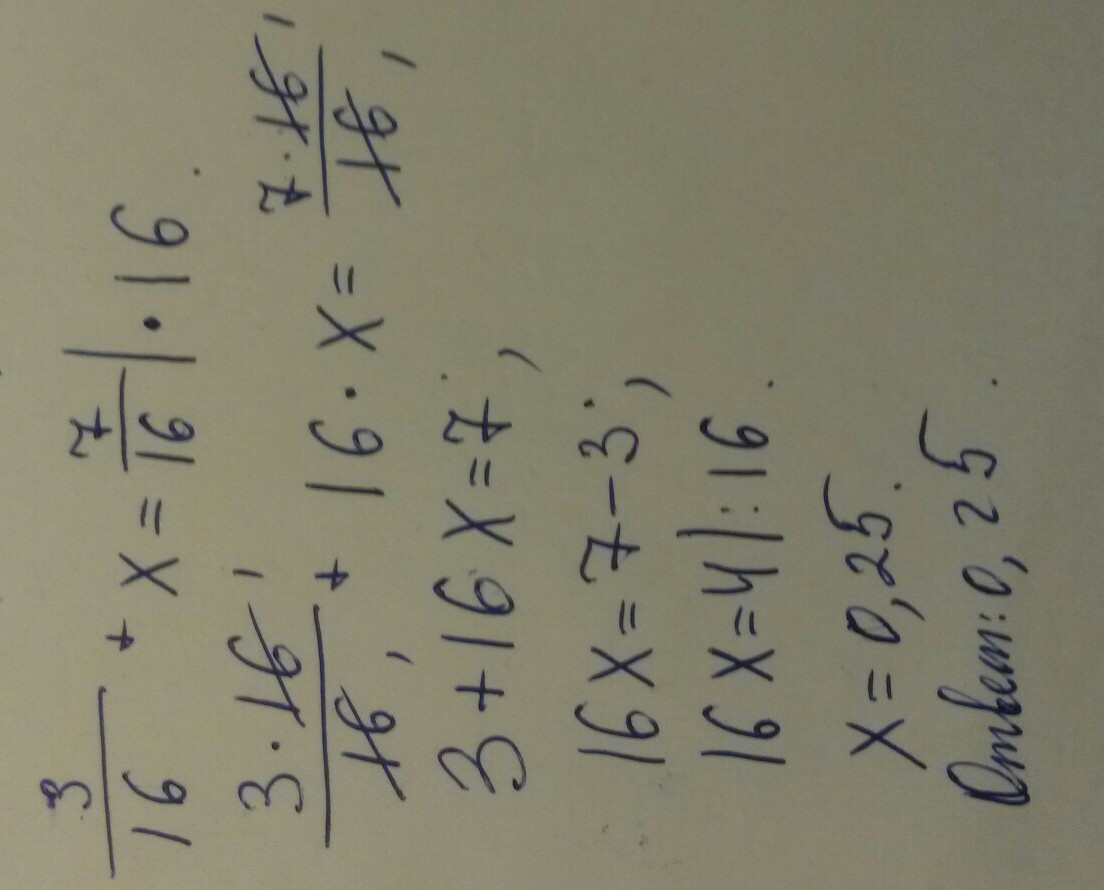 3/16 + x = 7/16 | · 16.
3·16/16 + 16·x = 7·16/16
3+16x=7;
16x=7-3;
16x=4|:16.
x=0,25.
Ответ: 0,25.